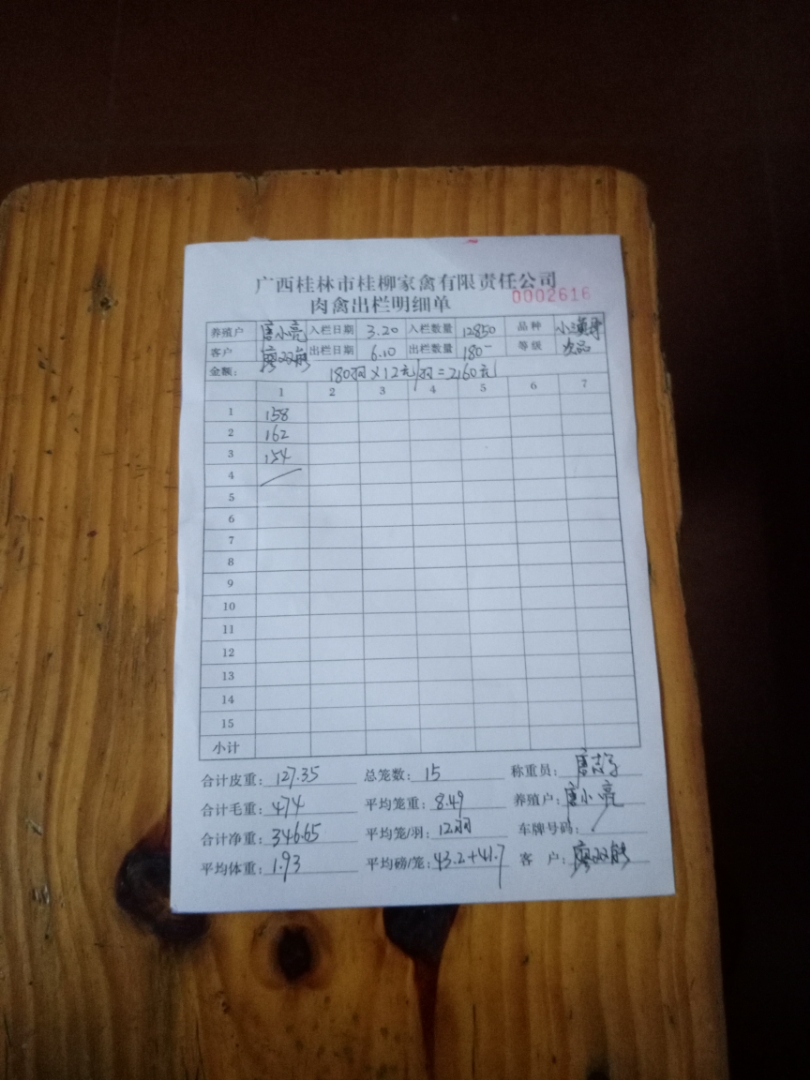 广西桂林市桂柳家禽有限责任公司
肉禽出栏明细单 0002616
养殖户 唐小亮 入栏日期 3.20 入栏数量 12850 品种
客户 廖双能 出栏日期 6.10 出栏数量 180 等级 次品
金额: 180羽×12元/羽=2160元
1 2 3 4 5 6 7
1 158
2 162
3 154
4
5
6
7
8
9
10
11
12
13
14
15
小计
合计皮重: 127.35 总笼数: 15 称重员: 唐
合计毛重: 474 平均笼重: 8.49 养殖户: 唐小亮
合计净重: 346.65 平均笼/羽: 12羽 车牌号码:
平均体重: 1.93 平均磅/笼: 43.2+41.7 客 户: 廖双能